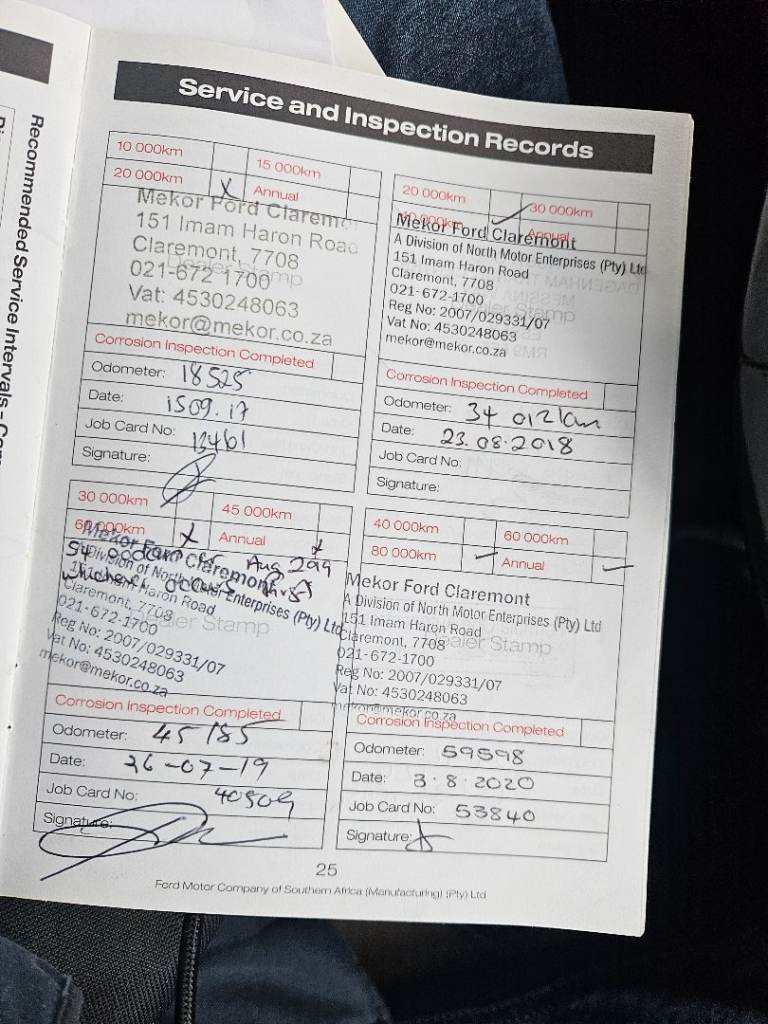 Recommended Service Intervals - Com
Service and Inspection Records
10 000km
15 000km
20 000km X
Annual
Mekor Ford Claremo
151 Imam Haron Road
Claremont, 7708
021-672 1700
Dealer Stamp
Vat: 4530248063
mekor@mekor.co.za
Corrosion Inspection Completed
Odometer: 18525
Date: 1509.17
Job Card No: 13461
Signature:
20 000km ✓
30 000km
Annual
Mekor Ford Claremont
A Division of North Motor Enterprises (Pty) Ltd
151 Imam Haron Road
Claremont, 7708
021-672-1700
Dealer Stamp
Reg No: 2007/029331/07
Vat No: 4530248063
mekor@mekor.co.za
Corrosion Inspection Completed
Odometer: 34 012km
Date: 23.08.2018
Job Card No:
Signature:
30 000km
45 000km
60 000km X
Annual
Mekor Ford Claremont
A Division of North Motor Enterprises (Pty) Ltd
151 Imam Haron Road
Claremont, 7708
021-672-1700
Dealer Stamp
Reg No: 2007/029331/07
Vat No: 4530248063
mekor@mekor.co.za
Corrosion Inspection Completed
Odometer: 45 185
Date: 26-07-19
Job Card No: 40509
Signature:
40 000km
60 000km
80 000km ✓
Annual ✓
Mekor Ford Claremont
A Division of North Motor Enterprises (Pty) Ltd
151 Imam Haron Road
Claremont, 7708
Dealer Stamp
021-672-1700
Reg No: 2007/029331/07
Vat No: 4530248063
mekor@mekor.co.za
Corrosion Inspection Completed
Odometer: 59598
Date: 3.8.2020
Job Card No: 53840
Signature:
25
Ford Motor Company of Southern Africa (Manufacturing) (Pty) Ltd